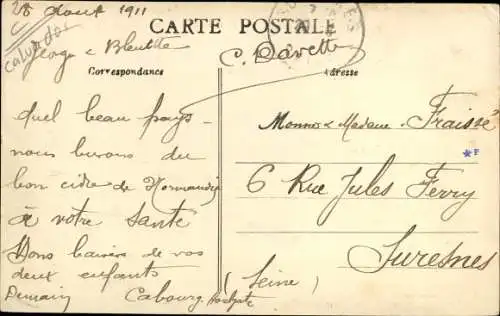 28 Aout 1911
CARTE POSTALE
Calvados
Correspondance
Adresse
Quel beau pays -
nous buvons du
bon cidre de Normandie
à votre santé
Bons baisers de vos
deux enfants
Demain Cabourg
Monsieur & Madame Fraissé
*F
6 Rue Jules Ferry
Suresnes
(Seine)